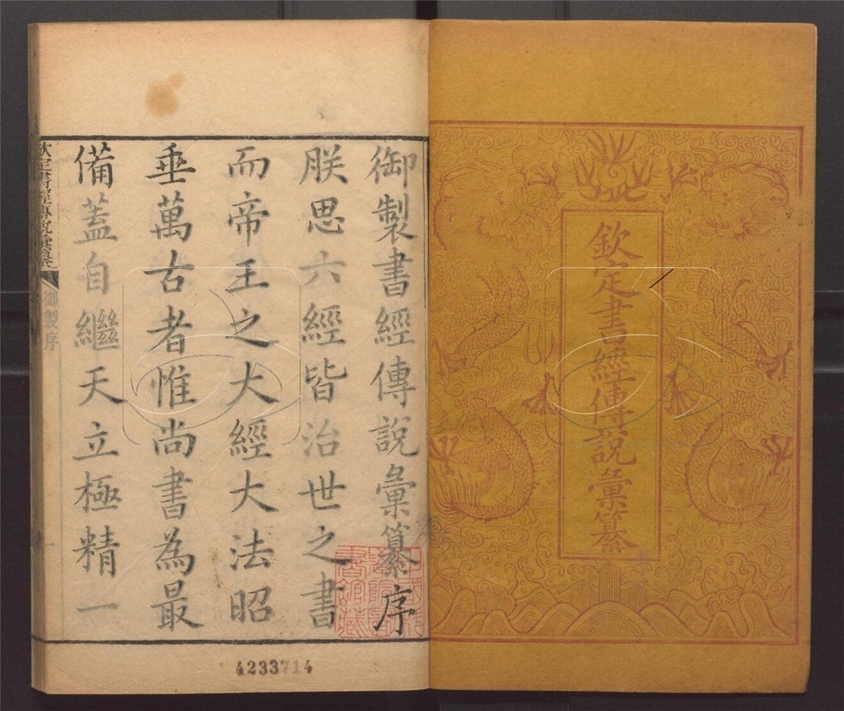 欽定書經傳說彙纂
御製書經傳說彙纂序
朕思六經皆治世之書
而帝王之大經大法昭
垂萬古者惟尚書為最
備蓋自繼天立極精一
欽定書經傳說彙纂
御製序
4233714